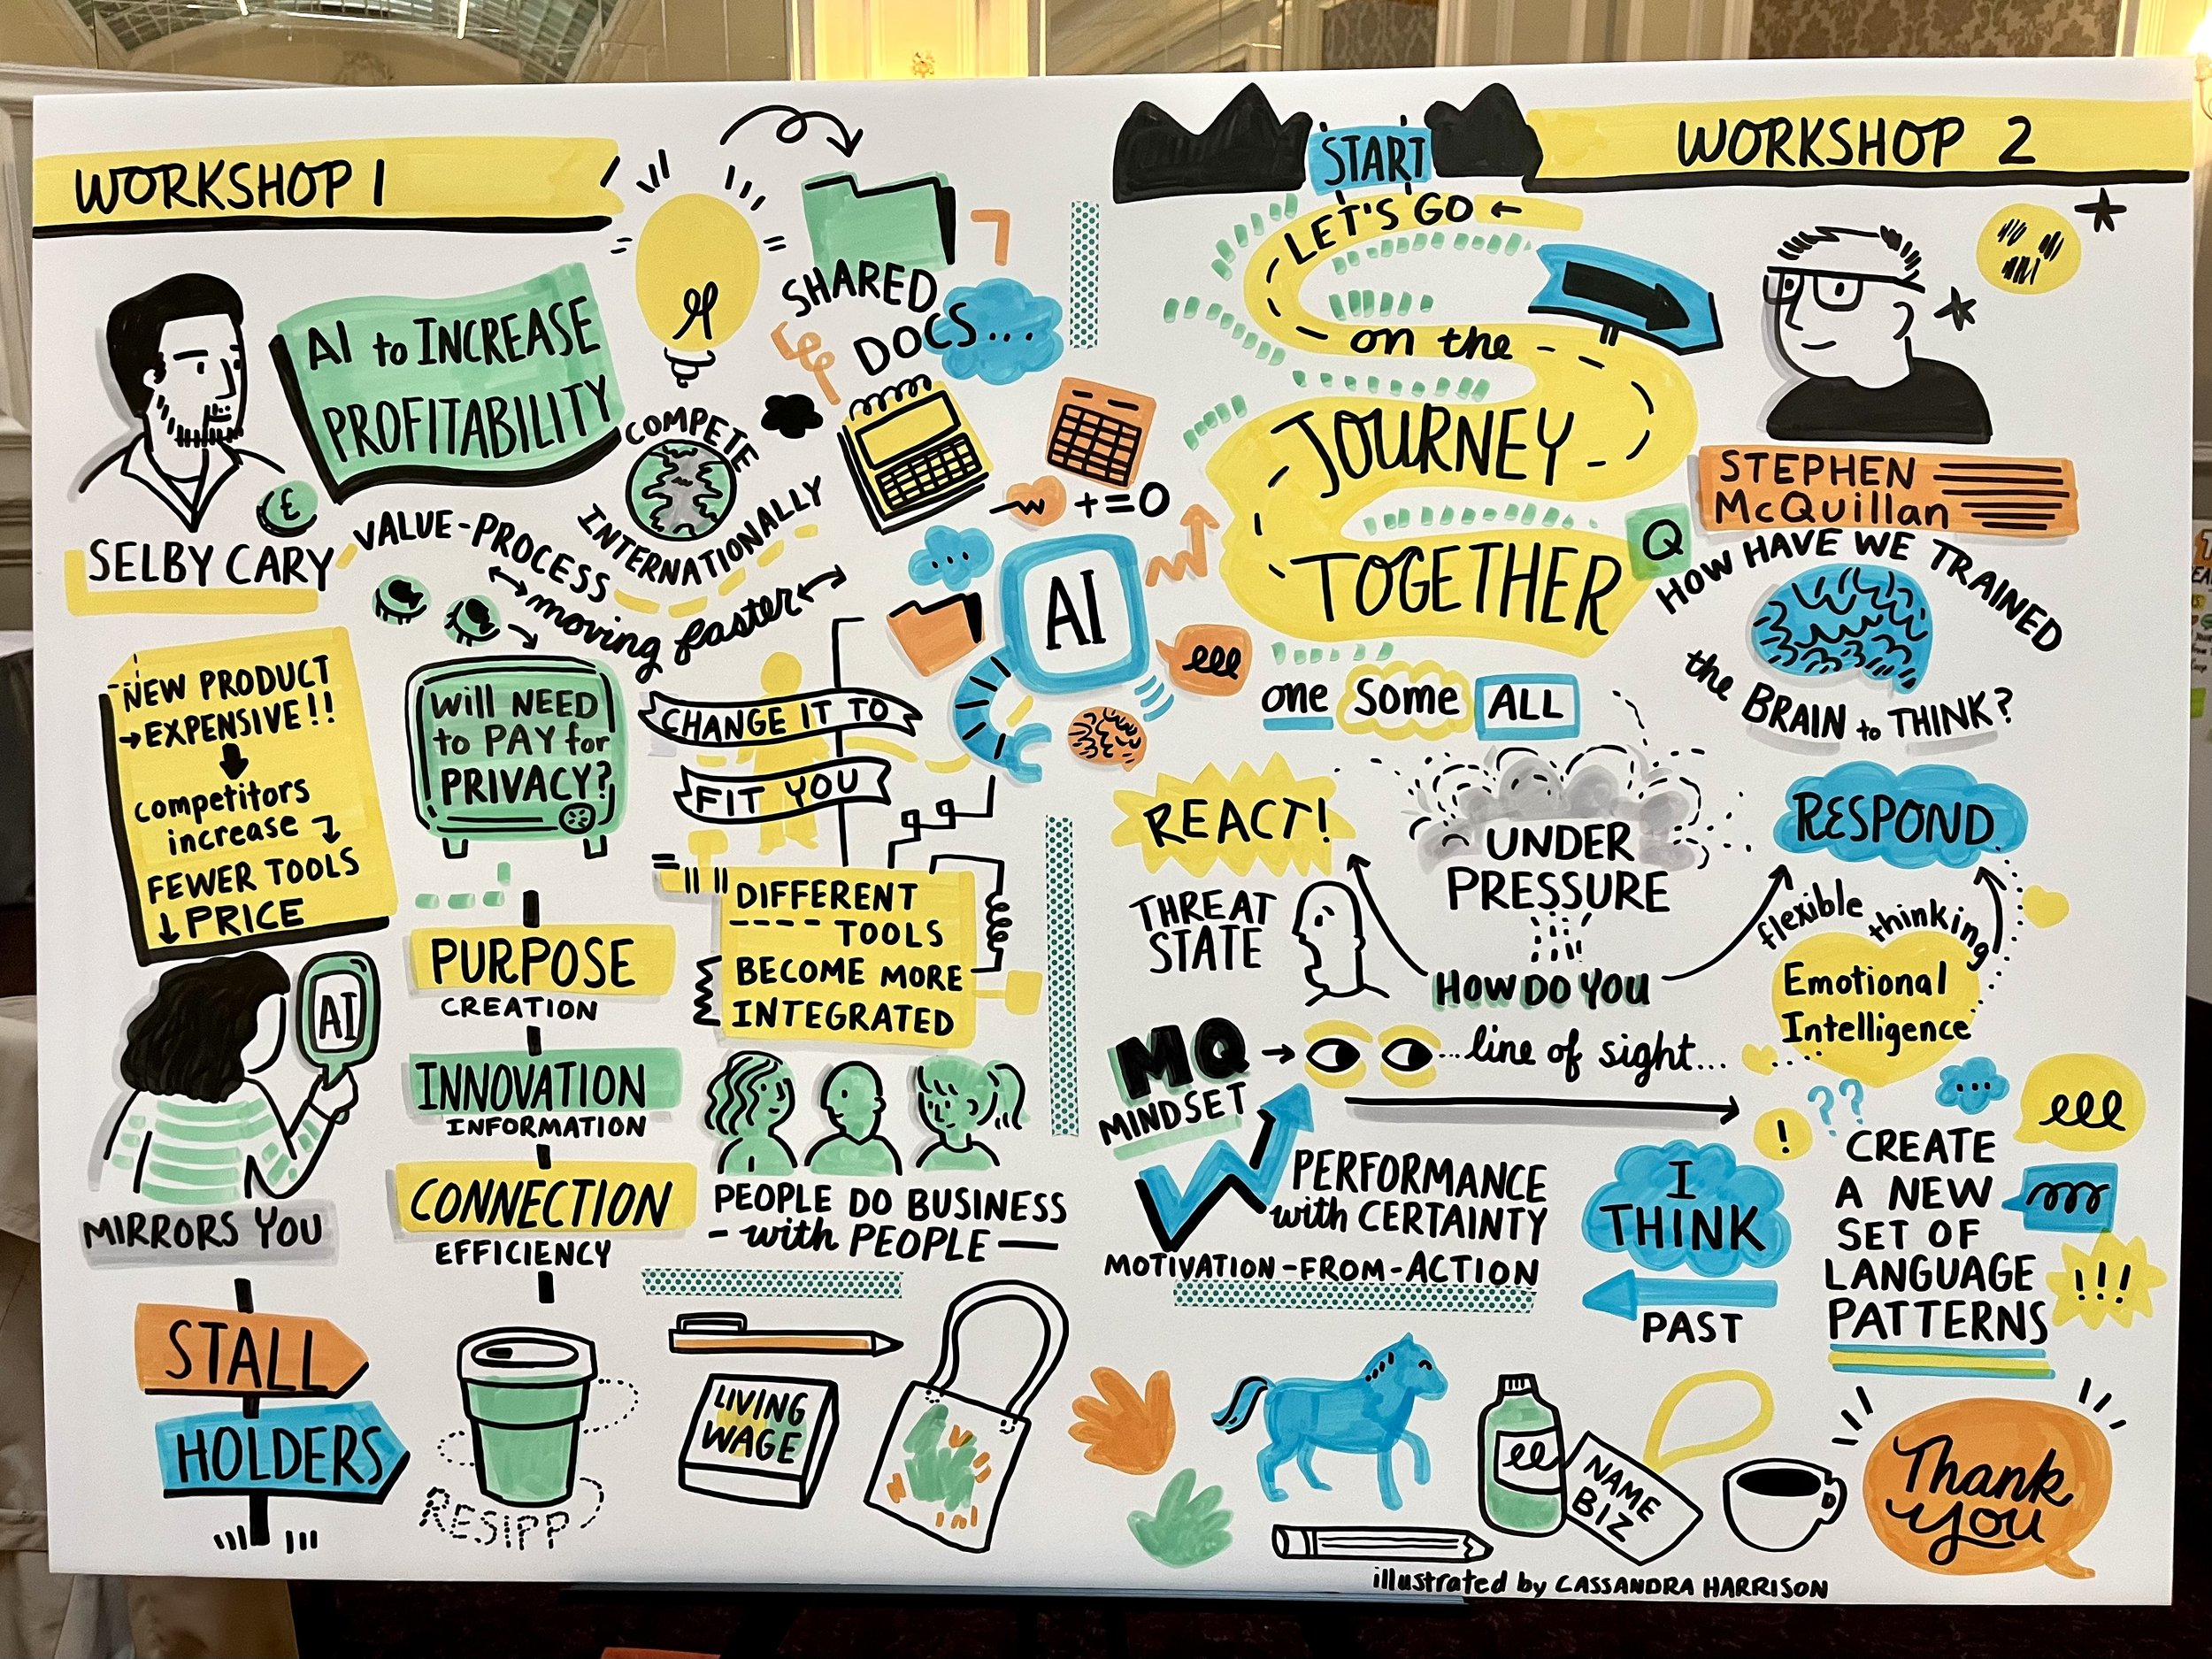 WORKSHOP 1
SELBY CARY
AI to INCREASE
PROFITABILITY
£
SHARED
DOCS...
COMPETE
INTERNATIONALLY
VALUE-PROCESS
moving faster
+=0
AI
NEW PRODUCT
→EXPENSIVE!!
competitors
increase
FEWER TOOLS
↓PRICE
Will NEED
to PAY for
PRIVACY?
CHANGE IT TO
FIT YOU
DIFFERENT
TOOLS
BECOME MORE
INTEGRATED
AI
MIRRORS YOU
PURPOSE
CREATION
INNOVATION
INFORMATION
CONNECTION
EFFICIENCY
PEOPLE DO BUSINESS
- with PEOPLE —
STALL
HOLDERS
RESIPP
LIVING
WAGE
WORKSHOP 2
START
LET'S GO ←
on the
JOURNEY
TOGETHER
STEPHEN
McQuillan
Q
HOW HAVE WE TRAINED
the BRAIN to THINK?
one some ALL
REACT!
THREAT
STATE
UNDER
PRESSURE
RESPOND
flexible thinking
Emotional
Intelligence
HOW DO YOU
MQ
MINDSET
→ line of sight...
PERFORMANCE
with CERTAINTY
MOTIVATION-FROM-ACTION
I
THINK
PAST
! ??
CREATE
A NEW
SET OF
LANGUAGE
PATTERNS
!!!
NAME
BIZ
Thank
you
illustrated by CASSANDRA HARRISON